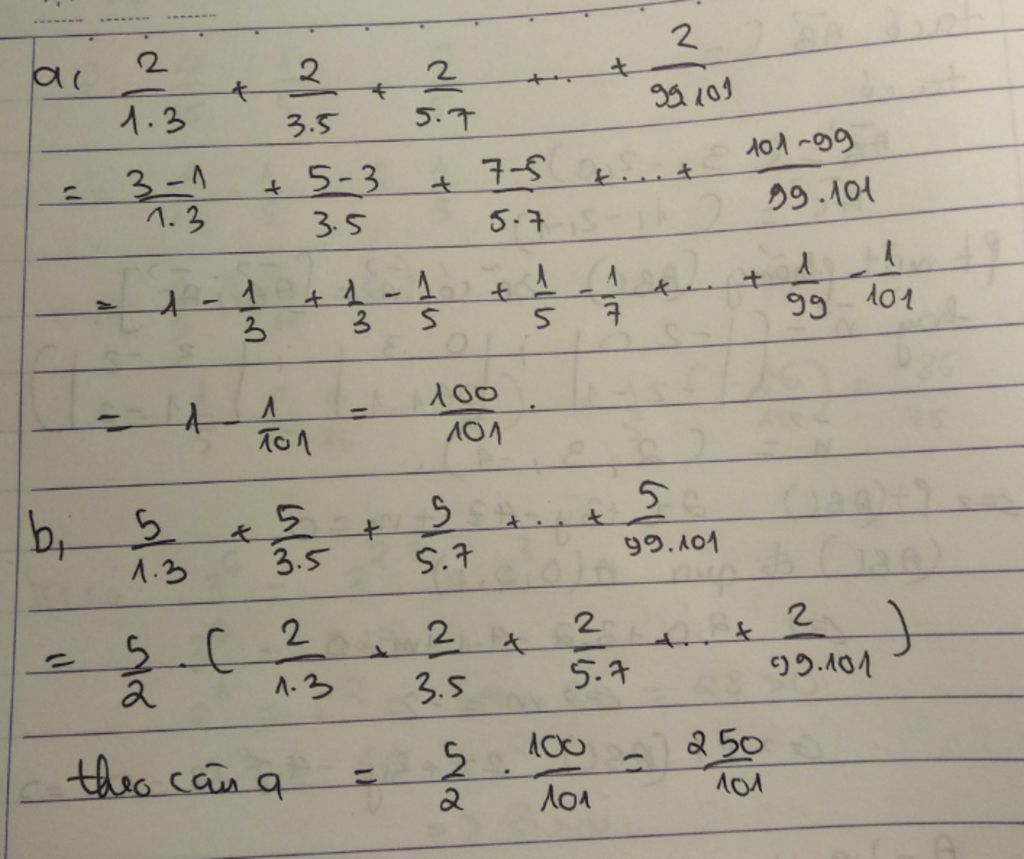 a, 2/1.3 + 2/3.5 + 2/5.7 +... + 2/99.101
= 3-1/1.3 + 5-3/3.5 + 7-5/5.7 +...+ 101-99/99.101
= 1 - 1/3 + 1/3 - 1/5 + 1/5 - 1/7 +...+ 1/99 - 1/101
= 1 - 1/101 = 100/101.
b, 5/1.3 + 5/3.5 + 5/5.7 +...+ 5/99.101
= 5/2 . ( 2/1.3 + 2/3.5 + 2/5.7 +...+ 2/99.101 )
theo câu a = 5/2 . 100/101 = 250/101